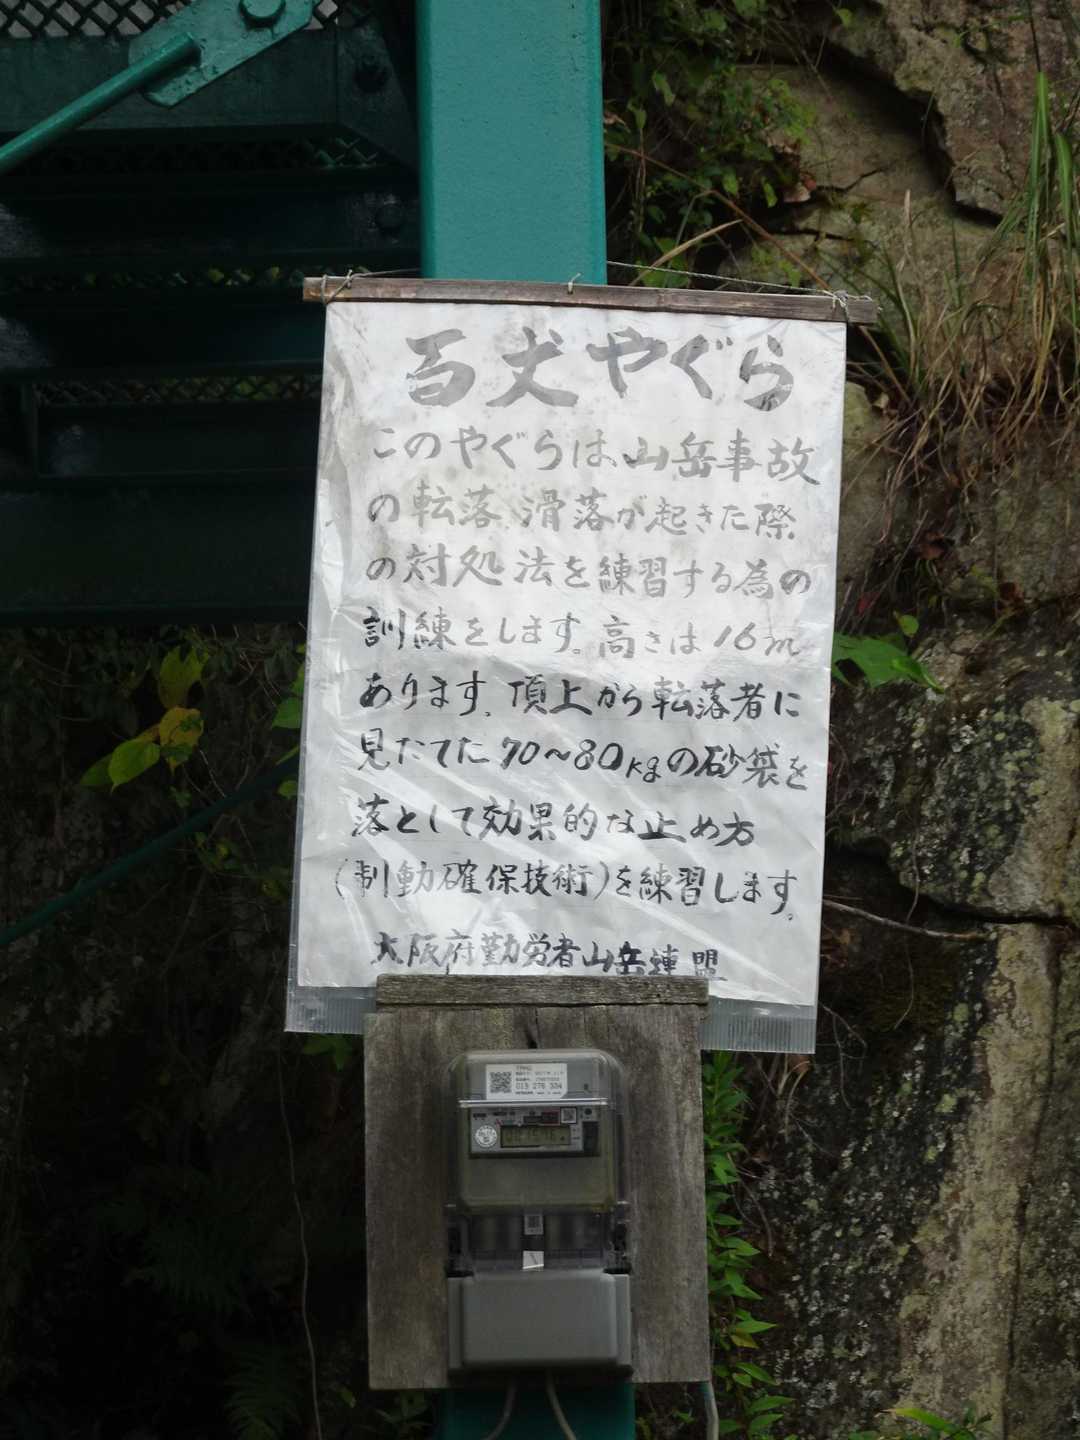 百丈やぐら
このやぐらは、山岳事故
の転落、滑落が起きた際
の対処法を練習する為の
訓練をします。高さは16m
あります。頂上から転落者に
見たてた70～80kgの砂袋を
落として効果的な止め方
(制動確保技術)を練習します。
大阪府勤労者山岳連盟
013 276 334